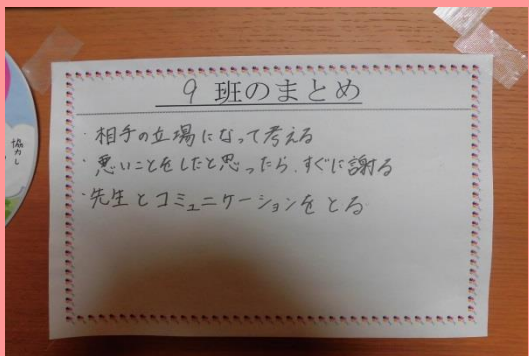 9 班のまとめ
・相手の立場になって考える
・悪いことをしたと思ったら、すぐに謝る
・先生とコミュニケーションをとる
協力し